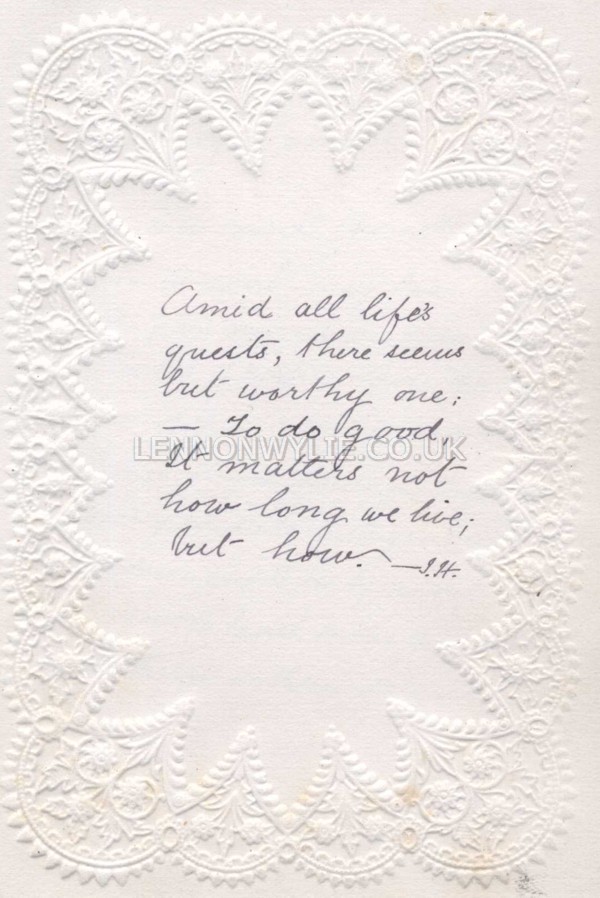 Amid all life's
quests, there seems
but worthy one:
— To do good,
LENNONWYLIE.CO.UK
It matters not
how long we live;
but how. — J.H.